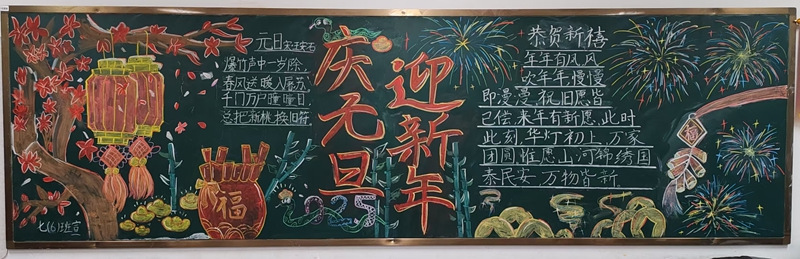 元日 宋 王安石
爆竹声中一岁除,
春风送暖入屠苏
千门万户曈曈日
总把新桃换旧符
福
七(6)班宣
庆元旦
2025
迎新年
恭贺新禧
年年有风,风
次年年慢慢
即漫漫,祝旧愿皆
已偿,来年有新愿,此时
此刻,华灯初上,万家
团圆,惟愿山河锦绣,国
泰民安,万物皆新
福